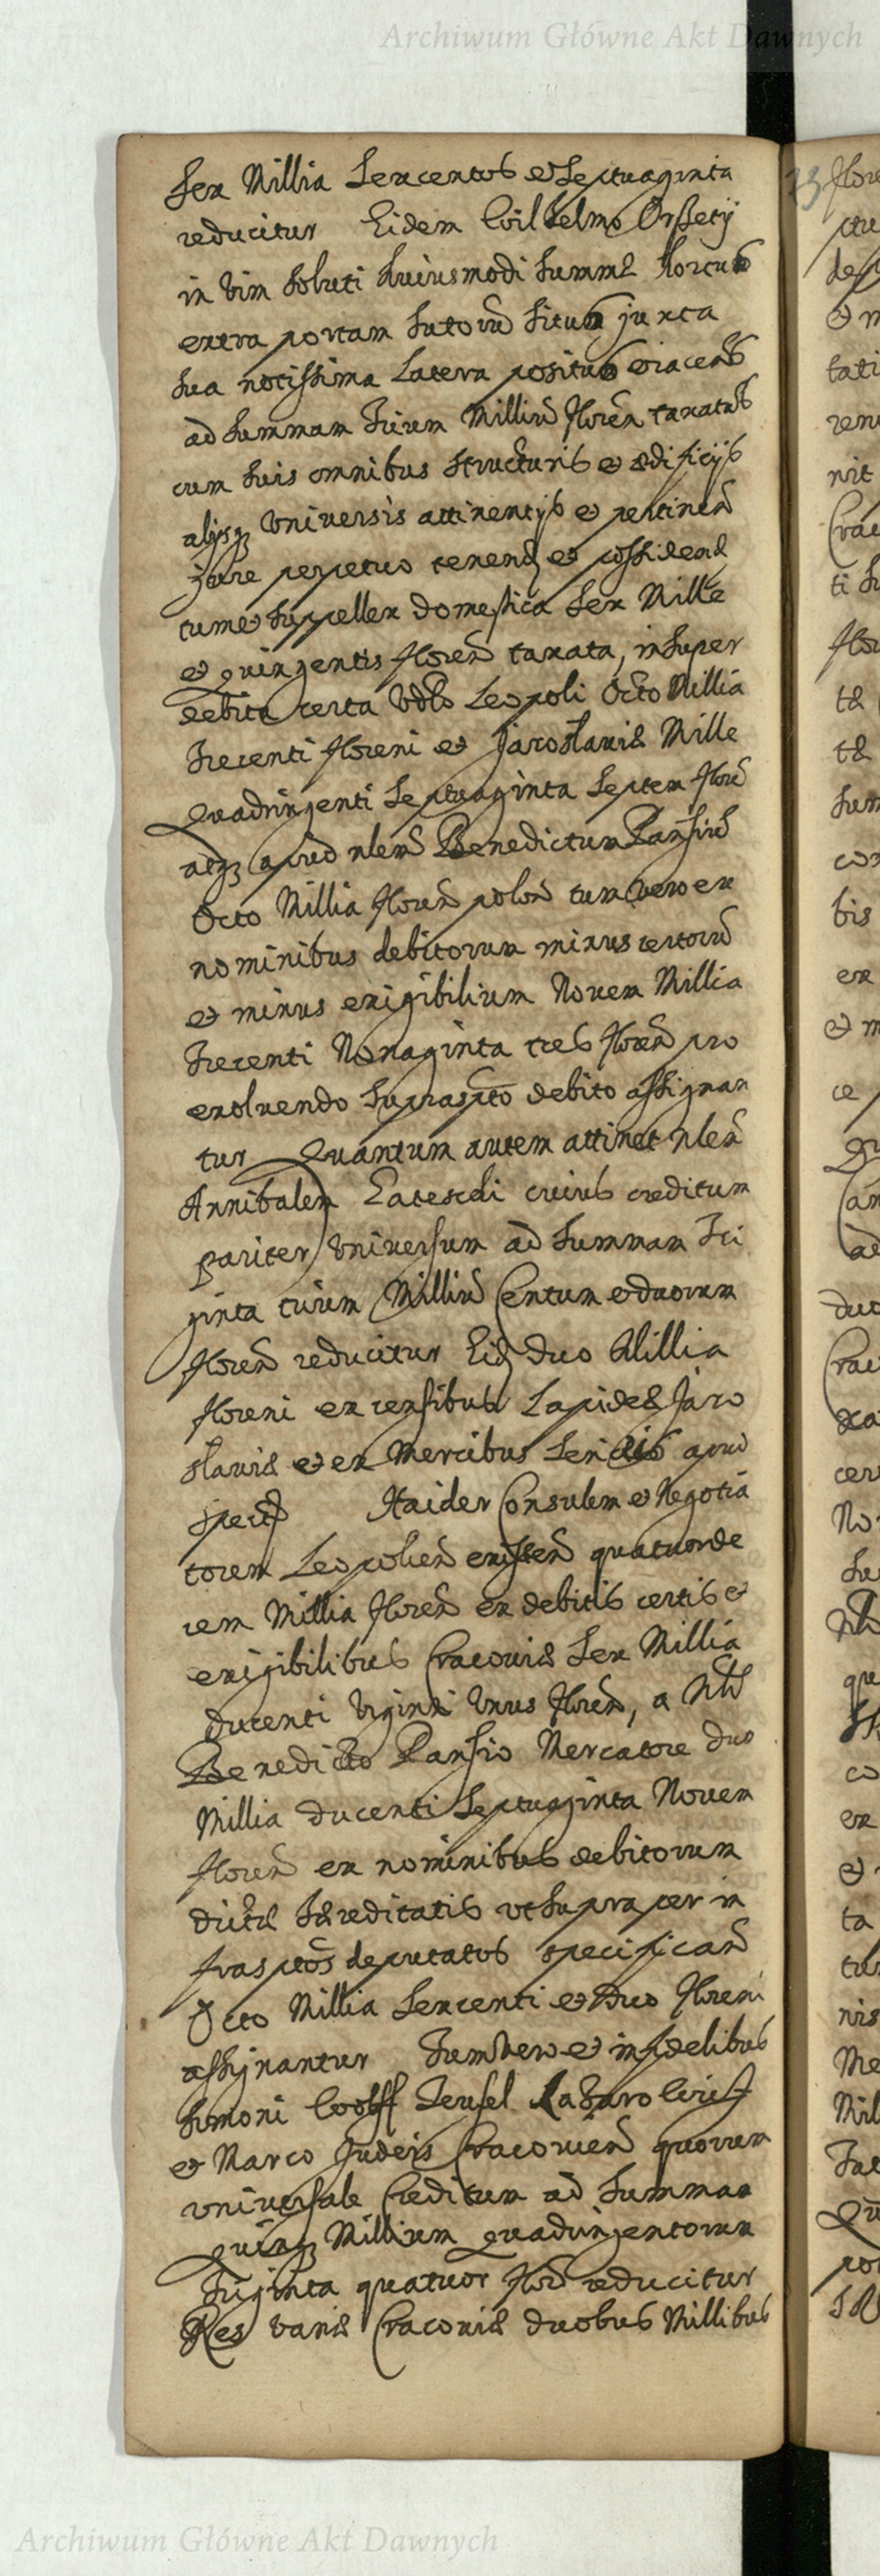 Archiwum Główne Akt Dawnych
Sex Millia Sexcentos et Septuaginta
reducitur Eidem Wilhelmo Orsetÿ
in vim soluti huiusmodi summæ hortus
extra portam Sutorũ situs juxta
sua notissima latera positus et iacens
ad summam Trium Milliũ floren taxatus
cum suis omnibus structuris et ædificijs
alijsq universis attinentijs et pertinen
jure perpetuo tenend et possidend
tum et suppellex domestica Sex Mille
et quingentis floren taxata, insuper
debita certa Leopoli Octo Millia
Trecenti floreni et Jaroslauiæ Mille
Quadringenti Septuaginta Septem flore
atq apud Benedictum Pansiũ
Octo Millia floren polon tum vero ex
nominibus debitorum minus certorũ
et minus exigibilium Novem Millia
Trecenti Nonaginta tres floren pro
exolvendo suprascpto debito assignan
tur Quantum autem attinet
Annibalem cuius creditum
pariter universum ad summam Tri
ginta trium Milliũ Centum et duorum
floren reducitur Eid duo Millia
floreni ex censibus Lapideæ Jaro
slaviæ et ex Mercibus apud
Haider Consulem et Negotia
torem Leopolien existen quatuorde
cem Millia floren ex debitis certis et
exigibilibus Cracoviæ Sex Millia
ducenti viginti unus floren, a
Benedicto Pansio Mercatore duo
Millia ducenti Septuaginta Novem
floren ex nominibus debitorum
dictæ Hæreditatis ut supra per in
frascptos deputatos specifican
Octo Millia Sexcenti et Duo floreni
assignantur Tum vero et infidelibus
Simoni Wolff Teufel Lazaro
et Marco Judeis Cracovien quorum
universale Creditum ad summam
quinq Millium quadringentorum
Triginta quatuor flor reducitur
Res variæ Cracoviæ duobus Millibus
Archiwum Główne Akt Dawnych